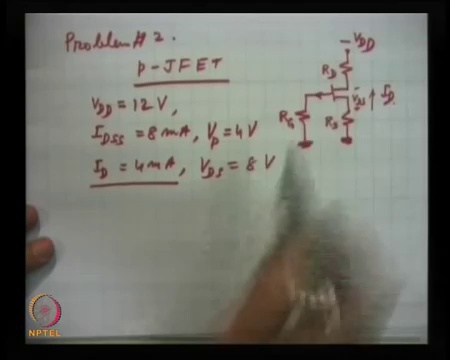 Problem # 2.
p-JFET
V_DD = 12 V,
I_DSS = 8 mA, V_p = 4V
I_D = 4 mA, V_DS = 8 V
- V_DD
R_D
-
V_DS
+
I_D
R_G
R_S
NPTEL